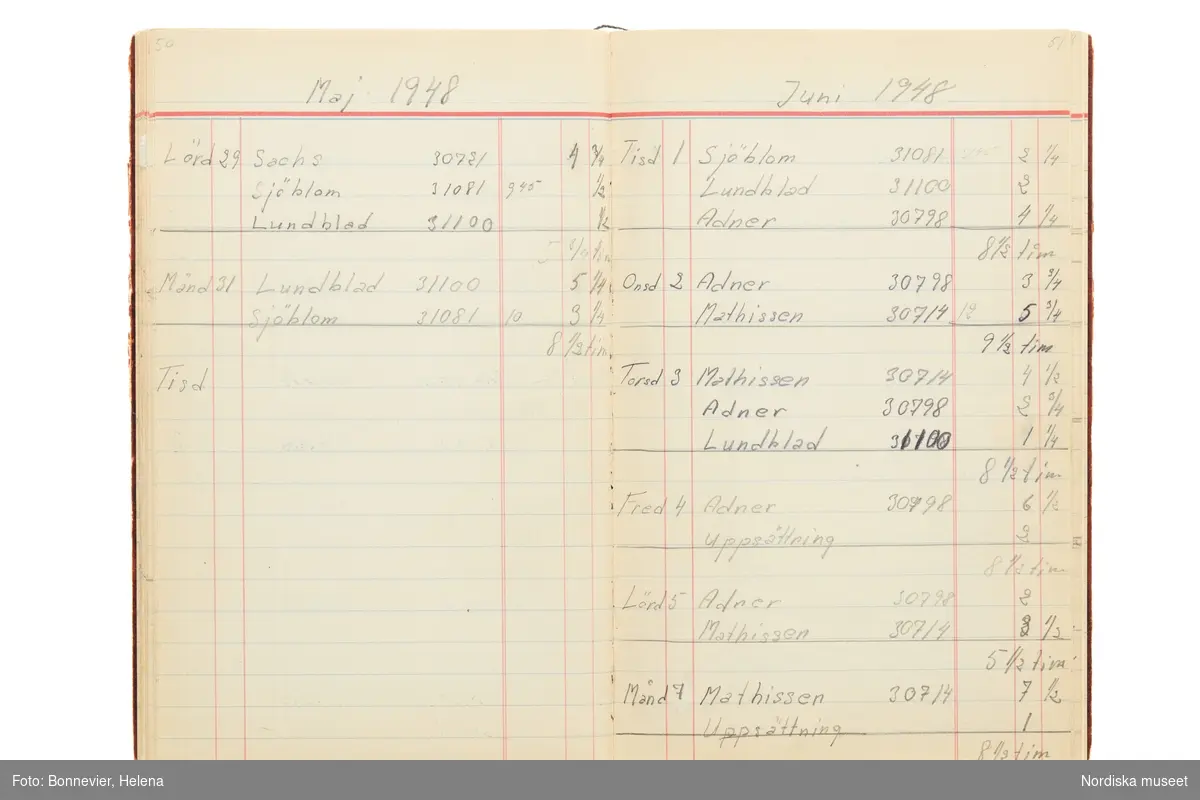 50
Maj 1948
Lörd 29 Sachs 30721 4 3/4
Sjöblom 31081 945 1/2
Lundblad 31100 1/2
5 3/4 tim
Månd 31 Lundblad 31100 5 1/4
Sjöblom 31081 10 3 1/4
8 1/2 tim
Tisd
51
Juni 1948
Tisd 1 Sjöblom 31081 2 1/4
Lundblad 31100 2
Adner 30798 4 1/4
8 1/2 tim
Onsd 2 Adner 30798 3 3/4
Mathissen 30714 12 5 3/4
9 1/2 tim
Torsd 3 Mathissen 30714 4 1/2
Adner 30798 2 3/4
Lundblad 31100 1 1/4
8 1/2 tim
Fred 4 Adner 30798 6 1/2
Uppsättning 2
8 1/2 tim
Lörd 5 Adner 30798 2
Mathissen 30714 3 1/2
5 1/2 tim
Månd 7 Mathissen 30714 7 1/2
Uppsättning 1
8 1/2 tim
Foto: Bonnevier, Helena
Nordiska museet